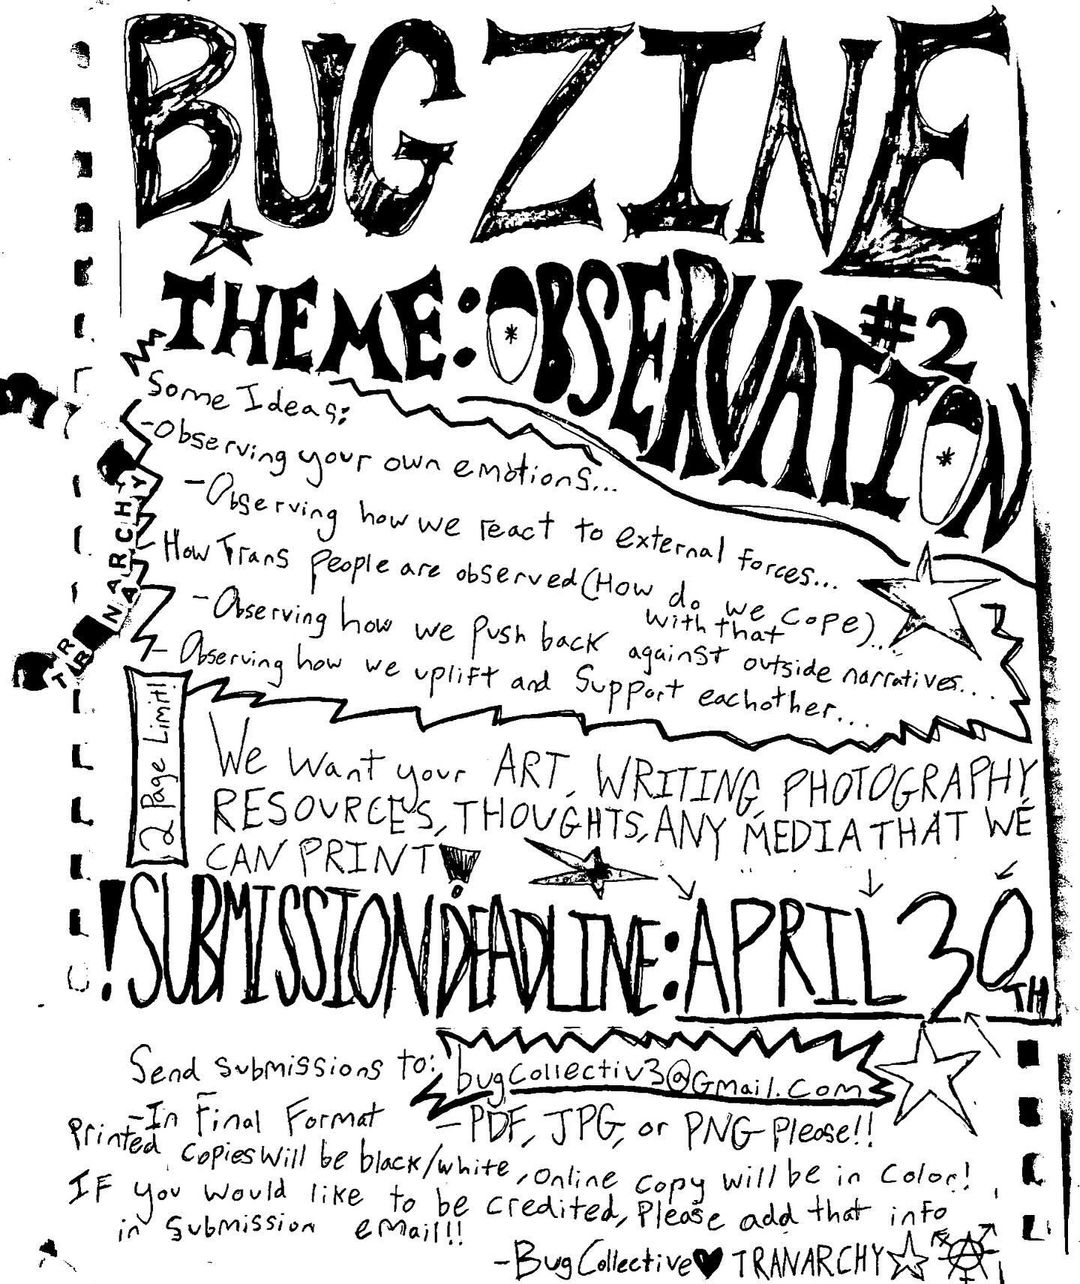 BUG ZINE
THEME: OBSERVATION
#2
Some Ideas:
-Observing your own emotions...
-Observing how we react to external forces...
-How Trans People are observed (How do we cope)...
with that
-Observing how we push back against outside narratives...
-Observing how we uplift and support eachother...
TRANARCHY
2 Page Limit!
We want your ART, WRITING, PHOTOGRAPHY,
RESOURCES, THOUGHTS, ANY MEDIA THAT WE
CAN PRINT!
!SUBMISSION DEADLINE: APRIL 30TH
Send submissions to: bugcollectiv3@Gmail.com
-In Final Format -PDF, JPG, or PNG Please!!
Printed copies will be black/white, Online copy will be in color!
IF you would like to be credited, Please add that info
in submission email!!
-Bug Collective♥ TRANARCHY☆